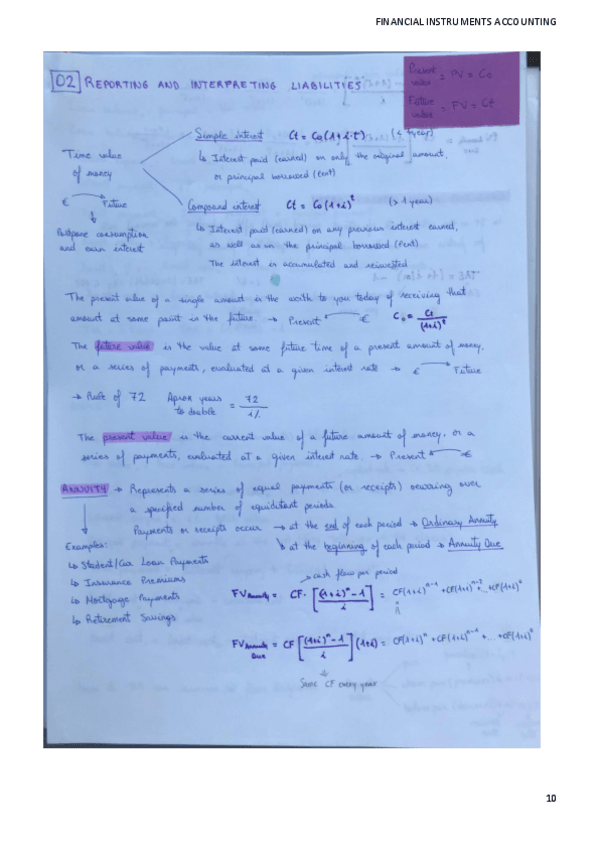 FINANCIAL INSTRUMENTS ACCOUNTING
02 REPORTING AND INTERPRETING LIABILITIES
Present value = PV = Co
Future value = FV = Ct
Simple interest Ct = Co(1+i·t) (< 1 year)
Time value of money
↳ Interest paid (earned) on only the original amount,
or principal borrowed (lent)
€ Future
Compound interest Ct = Co(1+i)^t (> 1 year)
Postpone consumption
and earn interest
↳ Interest paid (earned) on any previous interest earned,
as well as on the principal borrowed (lent).
The interest is accumulated and reinvested
The present value of a single amount is the worth to you today of receiving that
amount at some point in the future → Present € Co = Ct/(1+i)^t
The future value is the value at some future time of a present amount of money,
or a series of payments, evaluated at a given interest rate → € Future
→ Rule of 72 Aprox years to double = 72/i%
The present value is the current value of a future amount of money, or a
series of payments, evaluated at a given interest rate → Present €
ANNUITY → Represents a series of equal payments (or receipts) occuring over
a specified number of equidistant periods.
Payments or receipts occur → at the end of each period → Ordinary Annuity
↘ at the beginning of each period → Annuity Due
Examples:
↳ Student/Car Loan Payments
↳ Insurance Premiums
↳ Mortgage Payments
↳ Retirement Savings
→ cash flow per period
FV Annuity = CF · [(1+i)^n − 1 / i] = CF(1+i)^n-1 + CF(1+i)^n-2 + ... + CF(1+i)^0
FV Annuity Due = CF [(1+i)^n − 1 / i] (1+i) = CF(1+i)^n + CF(1+i)^n-1 + ... + CF(1+i)
Same CF every year
10